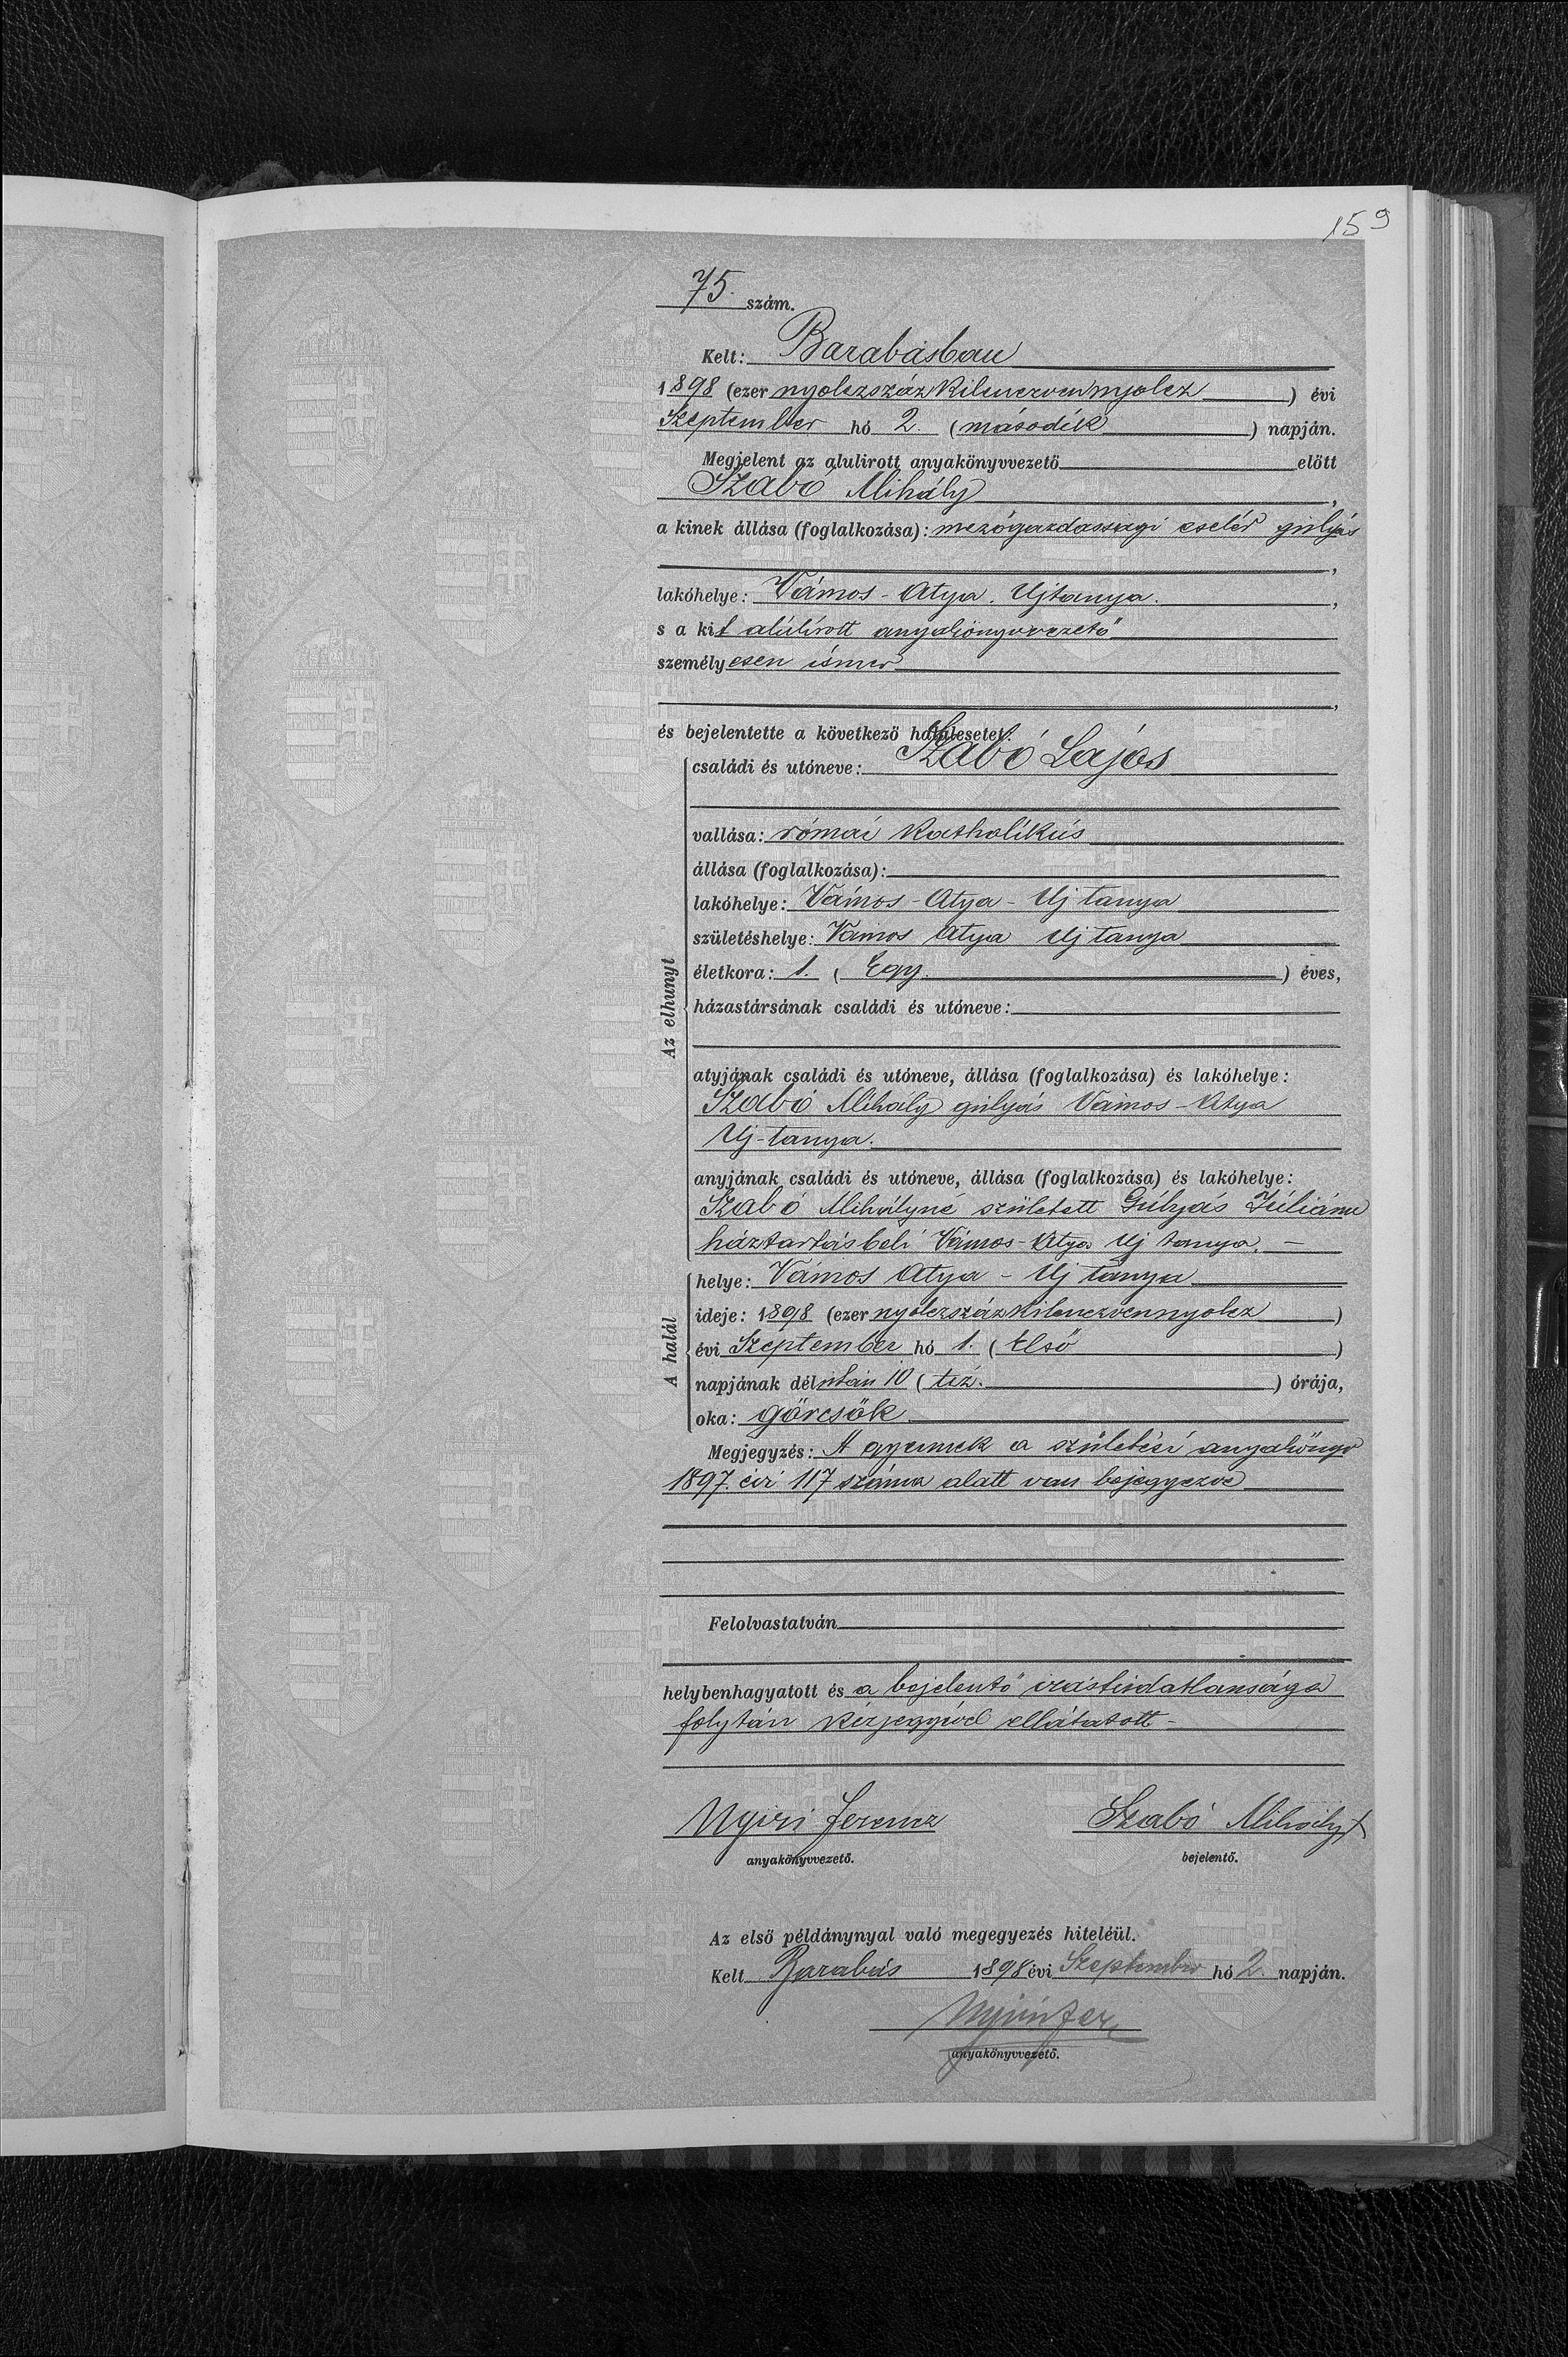 159
75. szám.
Kelt: Barabásban
1898 (ezer nyolczszáz kilenczven nyolcz) évi
Szeptember hó 2. (második) napján.
Megjelent az alulirott anyakönyvvezető előtt
Szabó Mihály,
a kinek állása (foglalkozása): mezőgazdassági cseléd gulyás
,
lakóhelye: Vámos-Atya. Ujtanya.,
s a kit alúlirott anyakönyvvezető
személyesen ismer
,
és bejelentette a következő halálesetet:
Az elhunyt
családi és utóneve: Szabó Lajos
vallása: római katholikús
állása (foglalkozása):
lakóhelye: Vámos-Atya-Uj tanya
születéshelye: Vámos Atya Uj tanya
életkora: 1. (Egy.) éves,
házastársának családi és utóneve:
atyjának családi és utóneve, állása (foglalkozása) és lakóhelye:
Szabó Mihály gulyás Vámos-Atya
Uj-tanya.
anyjának családi és utóneve, állása (foglalkozása) és lakóhelye:
Szabó Mihályné született Gulyás Juliánna
háztartásbeli Vámos-Atya Uj tanya. -
A halál
helye: Vámos Atya - Uj tanya
ideje: 1898 (ezer nyolczszáz kilenczven nyolcz)
évi Szeptember hó 1. (Első)
napjának délután 10 (tíz.) órája,
oka: görcsök
Megjegyzés: A gyermek a születési anyakönyv
1897. évi 117 száma alatt van bejegyezve
Felolvastatván
helybenhagyatott és a bejelentő irástudatlansága
folytán kézjegyével ellátatott-
Nyiri Ferencz Szabó Mihály X
anyakönyvvezető. bejelentő.
Az első példánynyal való megegyezés hiteléül.
Kelt Barabás 1898 évi Szeptember hó 2. napján.
Nyiri Fer
anyakönyvvezető.